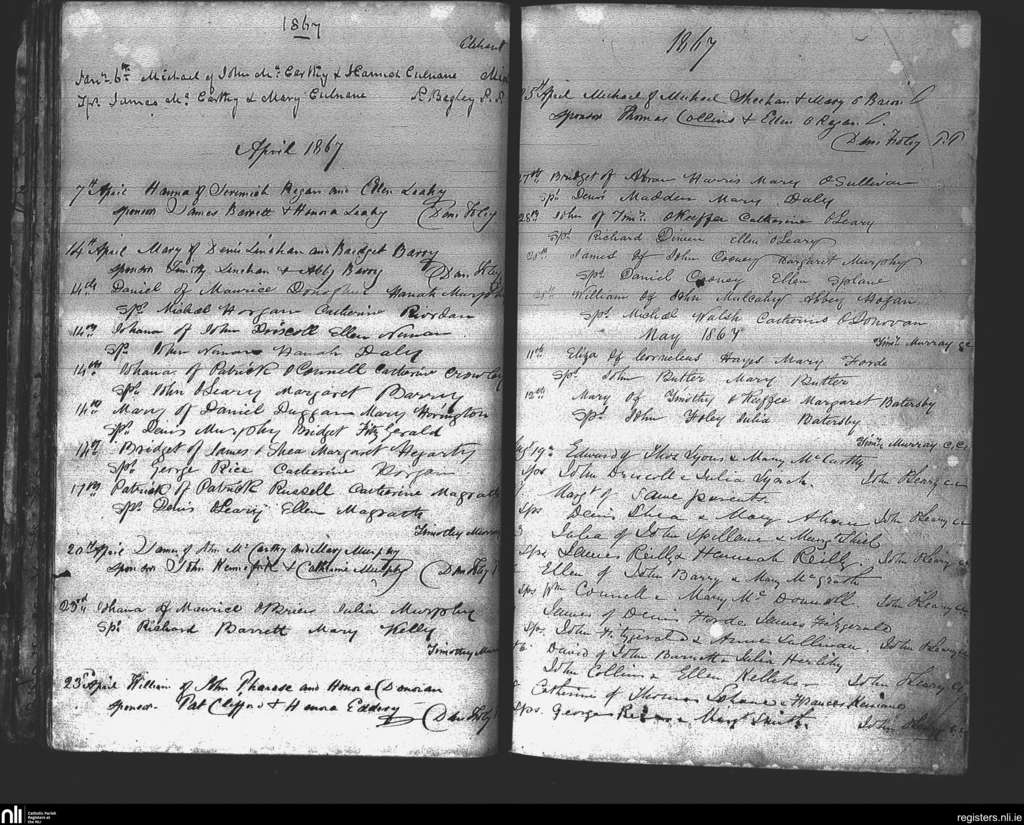 1867
Janr. 6th Michael of John Mc Carthy & Hannah Culnane
Sps. James Mc Carthy & Mary Culnane R. Begley P.P.
April 1867
7th April Hanna of Jeremiah Regan and Ellen Leahy
sponsor James Barrett & Honora Leahy (Dan Foley
14th April Mary of Denis Linehan and Bridget Barry
sponsor Timothy Linehan & Abby Barry (Dan Foley
14th Daniel of Maurice Donoghue Hanah Murphy
Sps. Michael Horgan Catherine Riordan
14th Johana of John Driscoll Ellen Noonan
Sps. John Noonan Hanah Daly
14th Johana of Patrick O'Connell Catherine Crowley
Sps. John O'Leary Margaret Barry
14th Mary of Daniel Duggan Mary Horington
Sps. Denis Murphy Bridget FitzGerald
14th Bridget of James O Shea Margaret Hegarty
Sps. George Rice Catherine Horgan
17th Patrick of Patrick Russell Catherine Magrath
Sps. Denis O'Leary Ellen Magrath
Timothy Murray
20th April James of John Mc Carthy and Mary Murphy
sponsor John & Catherine Murphy (Dan Foley
23rd Johana of Maurice O'Brien Julia Murphy
Sps. Richard Barrett Mary Kelly
Timothy Murray
23rd April William of John and Honora Donovan
sponsor Pat Clifford & Hanna (Dan Foley
1867
25th April Michael of Michael Sheehan & Mary O
sponsor Thomas Collins & Ellen O Regan
(Dan Foley P.P
27th Bridget of Harris Mary O'Sullivan
Sps. Denis Madden Mary Daly
28th John of Timy. O'Keeffe Catherine O'Leary
Sps. Richard Dineen Ellen O'Leary
28th James of John Cooney Margaret Murphy
Sps. Daniel Cooney Ellen Splane
William of John Mulcahy Abbey Hogan
Sps. Michael Walsh Catherine O'Donovan
May 1867 Timy. Murray cc
11th Eliza of Cornelius Hayes Mary Forde
Sps. John Butter Mary Butter
12th Mary of Timothy O'Keeffe Margaret Batersby
Sps. John Foley Julia Batersby
Timy. Murray C.C.
19th Edward of Thos Lyons & Mary McCarthy
Sps John Driscoll & Julia Lynch. John O'Leary cc
Margt of same parents.
Sps Denis Shea & Mary Ahern John O'Leary cc
Julia of John Spillane & Mary
Sps. James Reilly & Hannah Reilly John O'Leary cc
Ellen of John Barry & Mary McGrath
Sps Wm Connell & Mary Mc Donnell John O'Leary cc
James of Denis Forde Fitzgerald
Sps. John Fitzgerald & Sullivan. John O'Leary cc
David of John Barrett & Julia Herlihy
John Collins & Ellen Kelleher John O'Leary cc
Catherine of Thomas & Frances
Sps. George & Margt Smith. John O'Leary cc
nli
Catholic Parish
Registers at
the NLI
registers.nli.ie